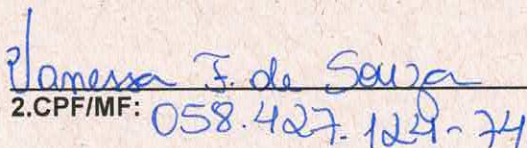 Vanessa F. de Souza
2.CPF/MF: 058.427.124-74